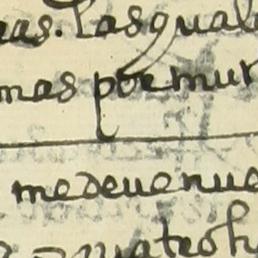 eas. Lasquale
mas por mur
medeuenue
quatroh